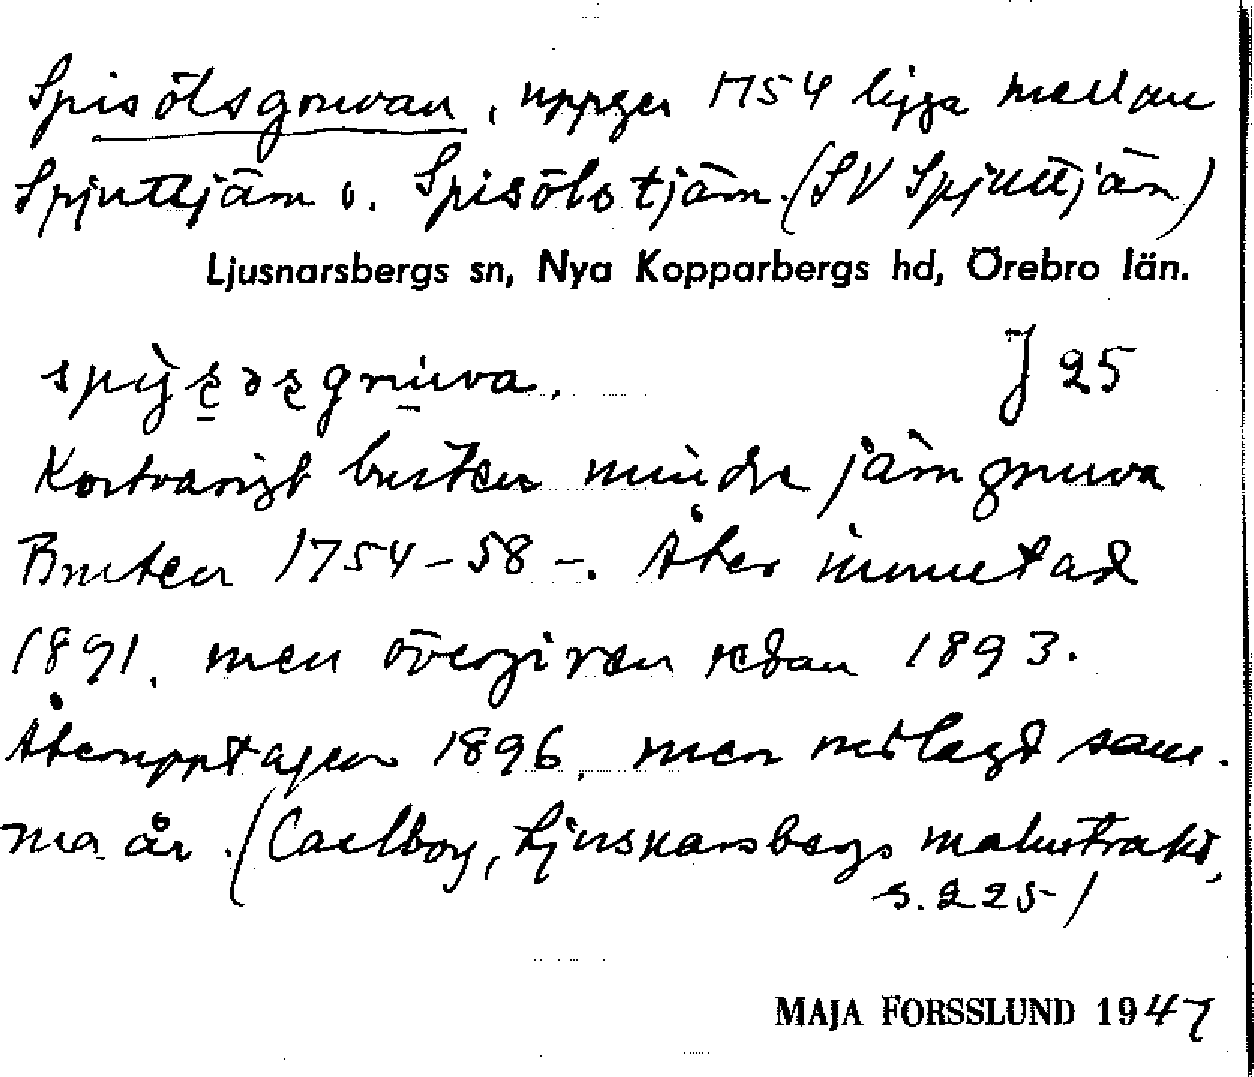 Spisölsgruvan, uppges 1754 ligga mellan
Spjuttjärn o. Spisölstjärn. (SV Spjuttjärn)
Ljusnarsbergs sn, Nya Kopparbergs hd, Örebro län.
J 25
Kortvarigt bruten mindre järngruva
Bruten 1754-58-. Åter inmutad
1891, men övergiven redan 1893.
Återupptagen 1896, men nedlagd sam-
ma år. (Carlborg, Ljusnarsbergs malmtrakt,
s. 225)
MAJA FORSSLUND 1947